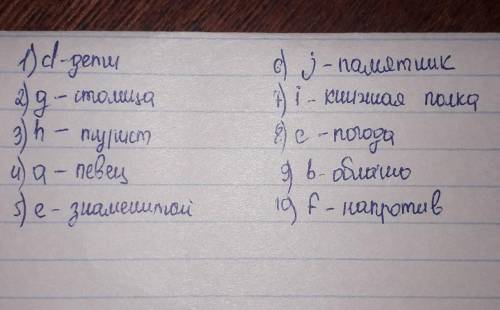 1) d - дети
2) g - столица
3) h - турист
4) a - певец
5) e - знаменитой
6) j - памятник
7) i - книжная полка
8) c - погода
9) b - облако
10) f - напротив